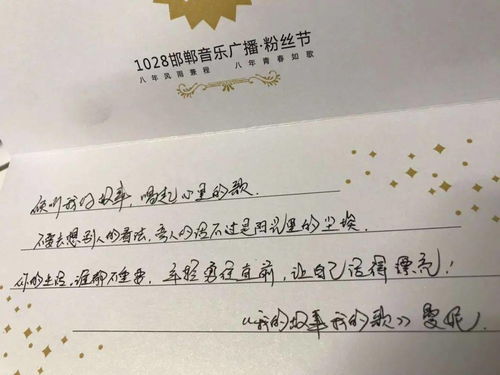 1028邯郸音乐广播·粉丝节
八年风雨兼程 八年青春如歌
倾听我的故事,唱起心里的歌.
不要去想别人的看法,旁人的话不过是阳光里的尘埃.
你的生活,谁都不重要.年轻勇往直前,让自己活得漂亮!
《我的故事我的歌》曼妮